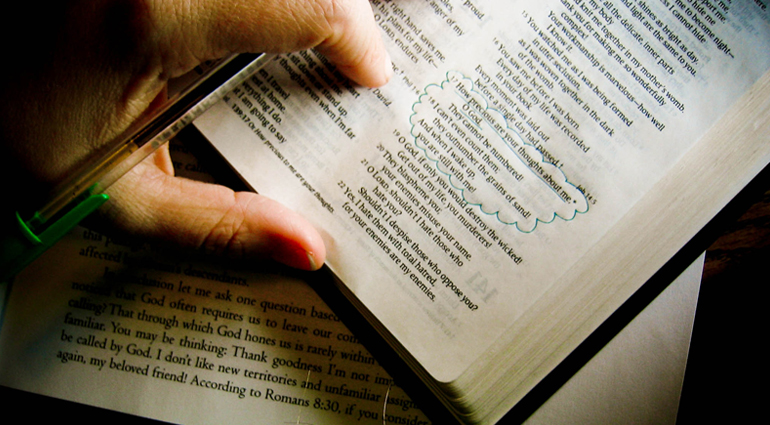 proud
anger of my
right hand saves me.
plans for my life
endures
stand up.
thoughts even when I'm far
I travel
at home.
everything I do.
at I am going to say
139:17 Or How precious to me are your thoughts.
I cannot hide
to become night—
shines as bright as day.
light are the same to you.
all the delicate, inner parts
knit me together in my mother's womb.
for making me so wonderfully
complex!
Your workmanship is marvelous—how well
I know it.
15 You watched me as I was being formed
in utter seclusion,
as I was woven together in the dark
of the womb.
16 You saw me before I was born.
Every day of my life was recorded
in your book.
Every moment was laid out
before a single day had passed.
17 How precious are your thoughts about me,*
They cannot be numbered!
18 I can't even count them;
they outnumber the grains of sand!
And when I wake up,
you are still with me!
19 O God, if only you would destroy the wicked!
Get out of my life, you murderers!
20 They blaspheme you;
your enemies misuse your name.
21 O LORD, shouldn't I hate those who
hate you?
Shouldn't I despise those who oppose you?
22 Yes, I hate them with total hatred,
for your enemies are my enemies.
this
affected descendants.
let me ask one question based
noticed that God often requires us to leave our com
calling? That through which God hones us is rarely within
familiar. You may be thinking: Thank goodness I'm not
be called by God. I don't like new territories and unfamiliar assign
again, my beloved friend! According to Romans 8:30, if you consider